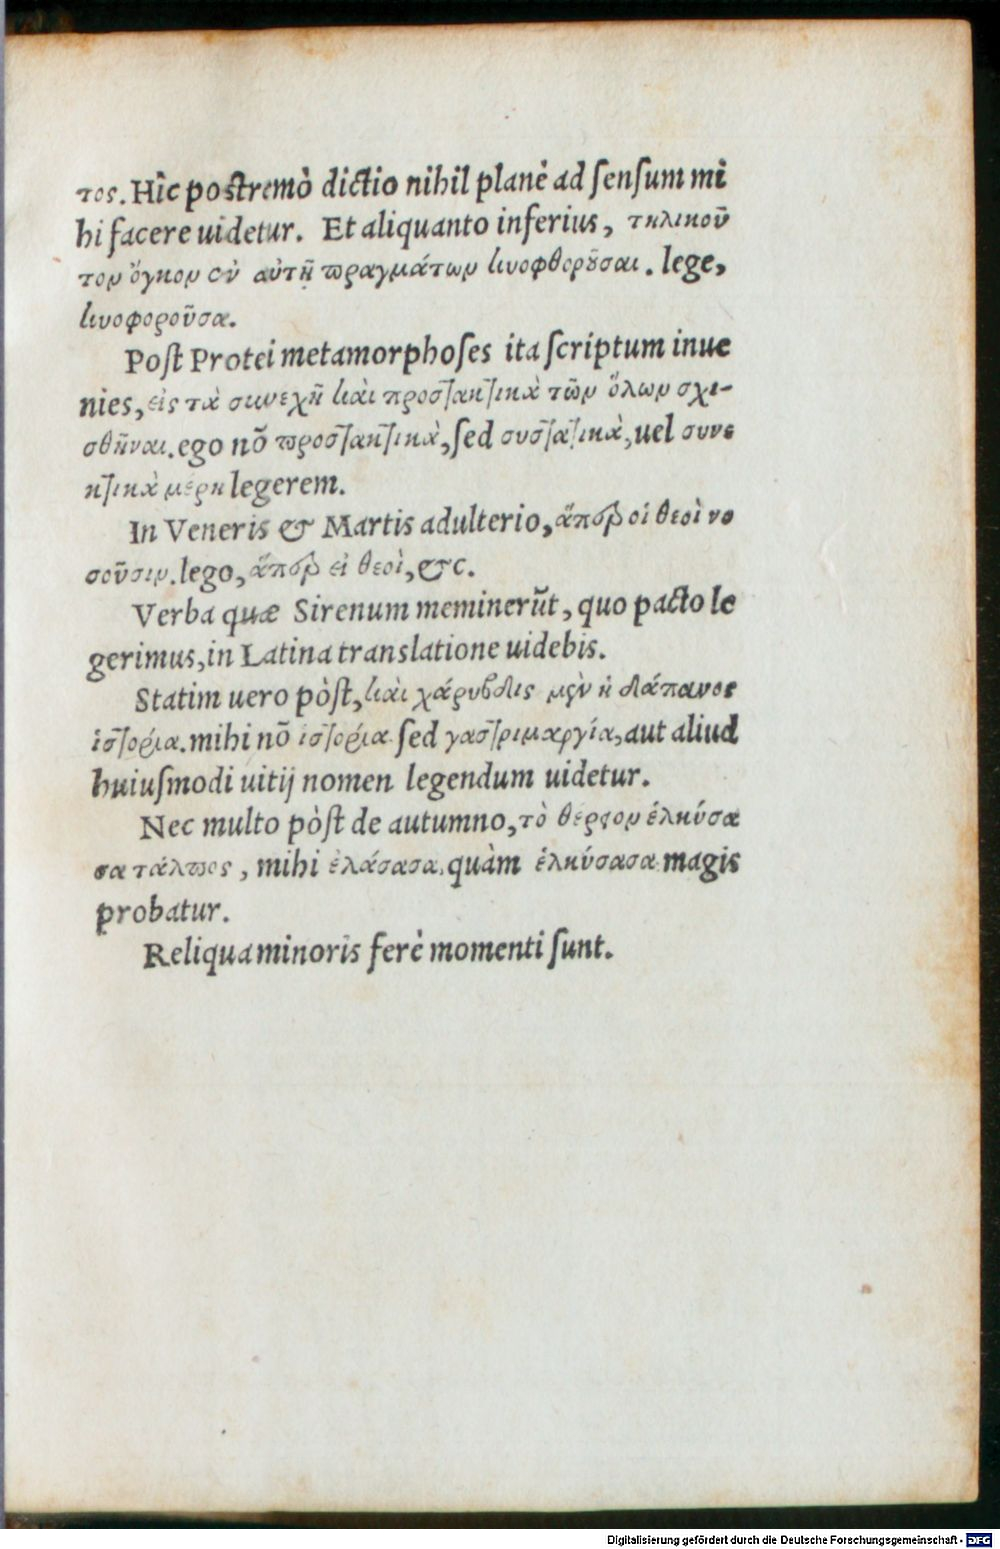 τος. Hîc postremò dictio nihil planè ad sensum mi
hi facere uidetur. Et aliquanto inferius, τηλικοῦ
τον ὄγκον ἐν αὑτῇ πραγμάτων κυοφθοροῦσαι. lege,
κυοφοροῦσα.
Post Protei metamorphoses ita scriptum inue
nies, εἰς τὰ συνεχῆ καὶ προστακτικὰ τῶν ὅλων σχι-
σθῆναι. ego nō προστακτικὰ, sed συστατικὰ, uel συνε
κτικὰ μέρη legerem.
In Veneris & Martis adulterio, ἅπερ οἱ θεοὶ νο
σοῦσιν. lego, ἅπερ εἰ θεοὶ, &c.
Verba quæ Sirenum meminerūt, quo pacto le
gerimus, in Latina translatione uidebis.
Statim uero pòst, καὶ χάρυβδις μὲν ἡ δάπανος
ἱστορία. mihi nō ἱστορία sed γαστριμαργία, aut aliud
huiusmodi uitij nomen legendum uidetur.
Nec multo pòst de autumno, τὸ θέρεον ἑλκύσα
σα τάλπος, mihi ἐλάσασα, quàm ἑλκύσασα magis
probatur.
Reliqua minoris ferè momenti sunt.
Digitalisierung gefördert durch die Deutsche Forschungsgemeinschaft - DFG